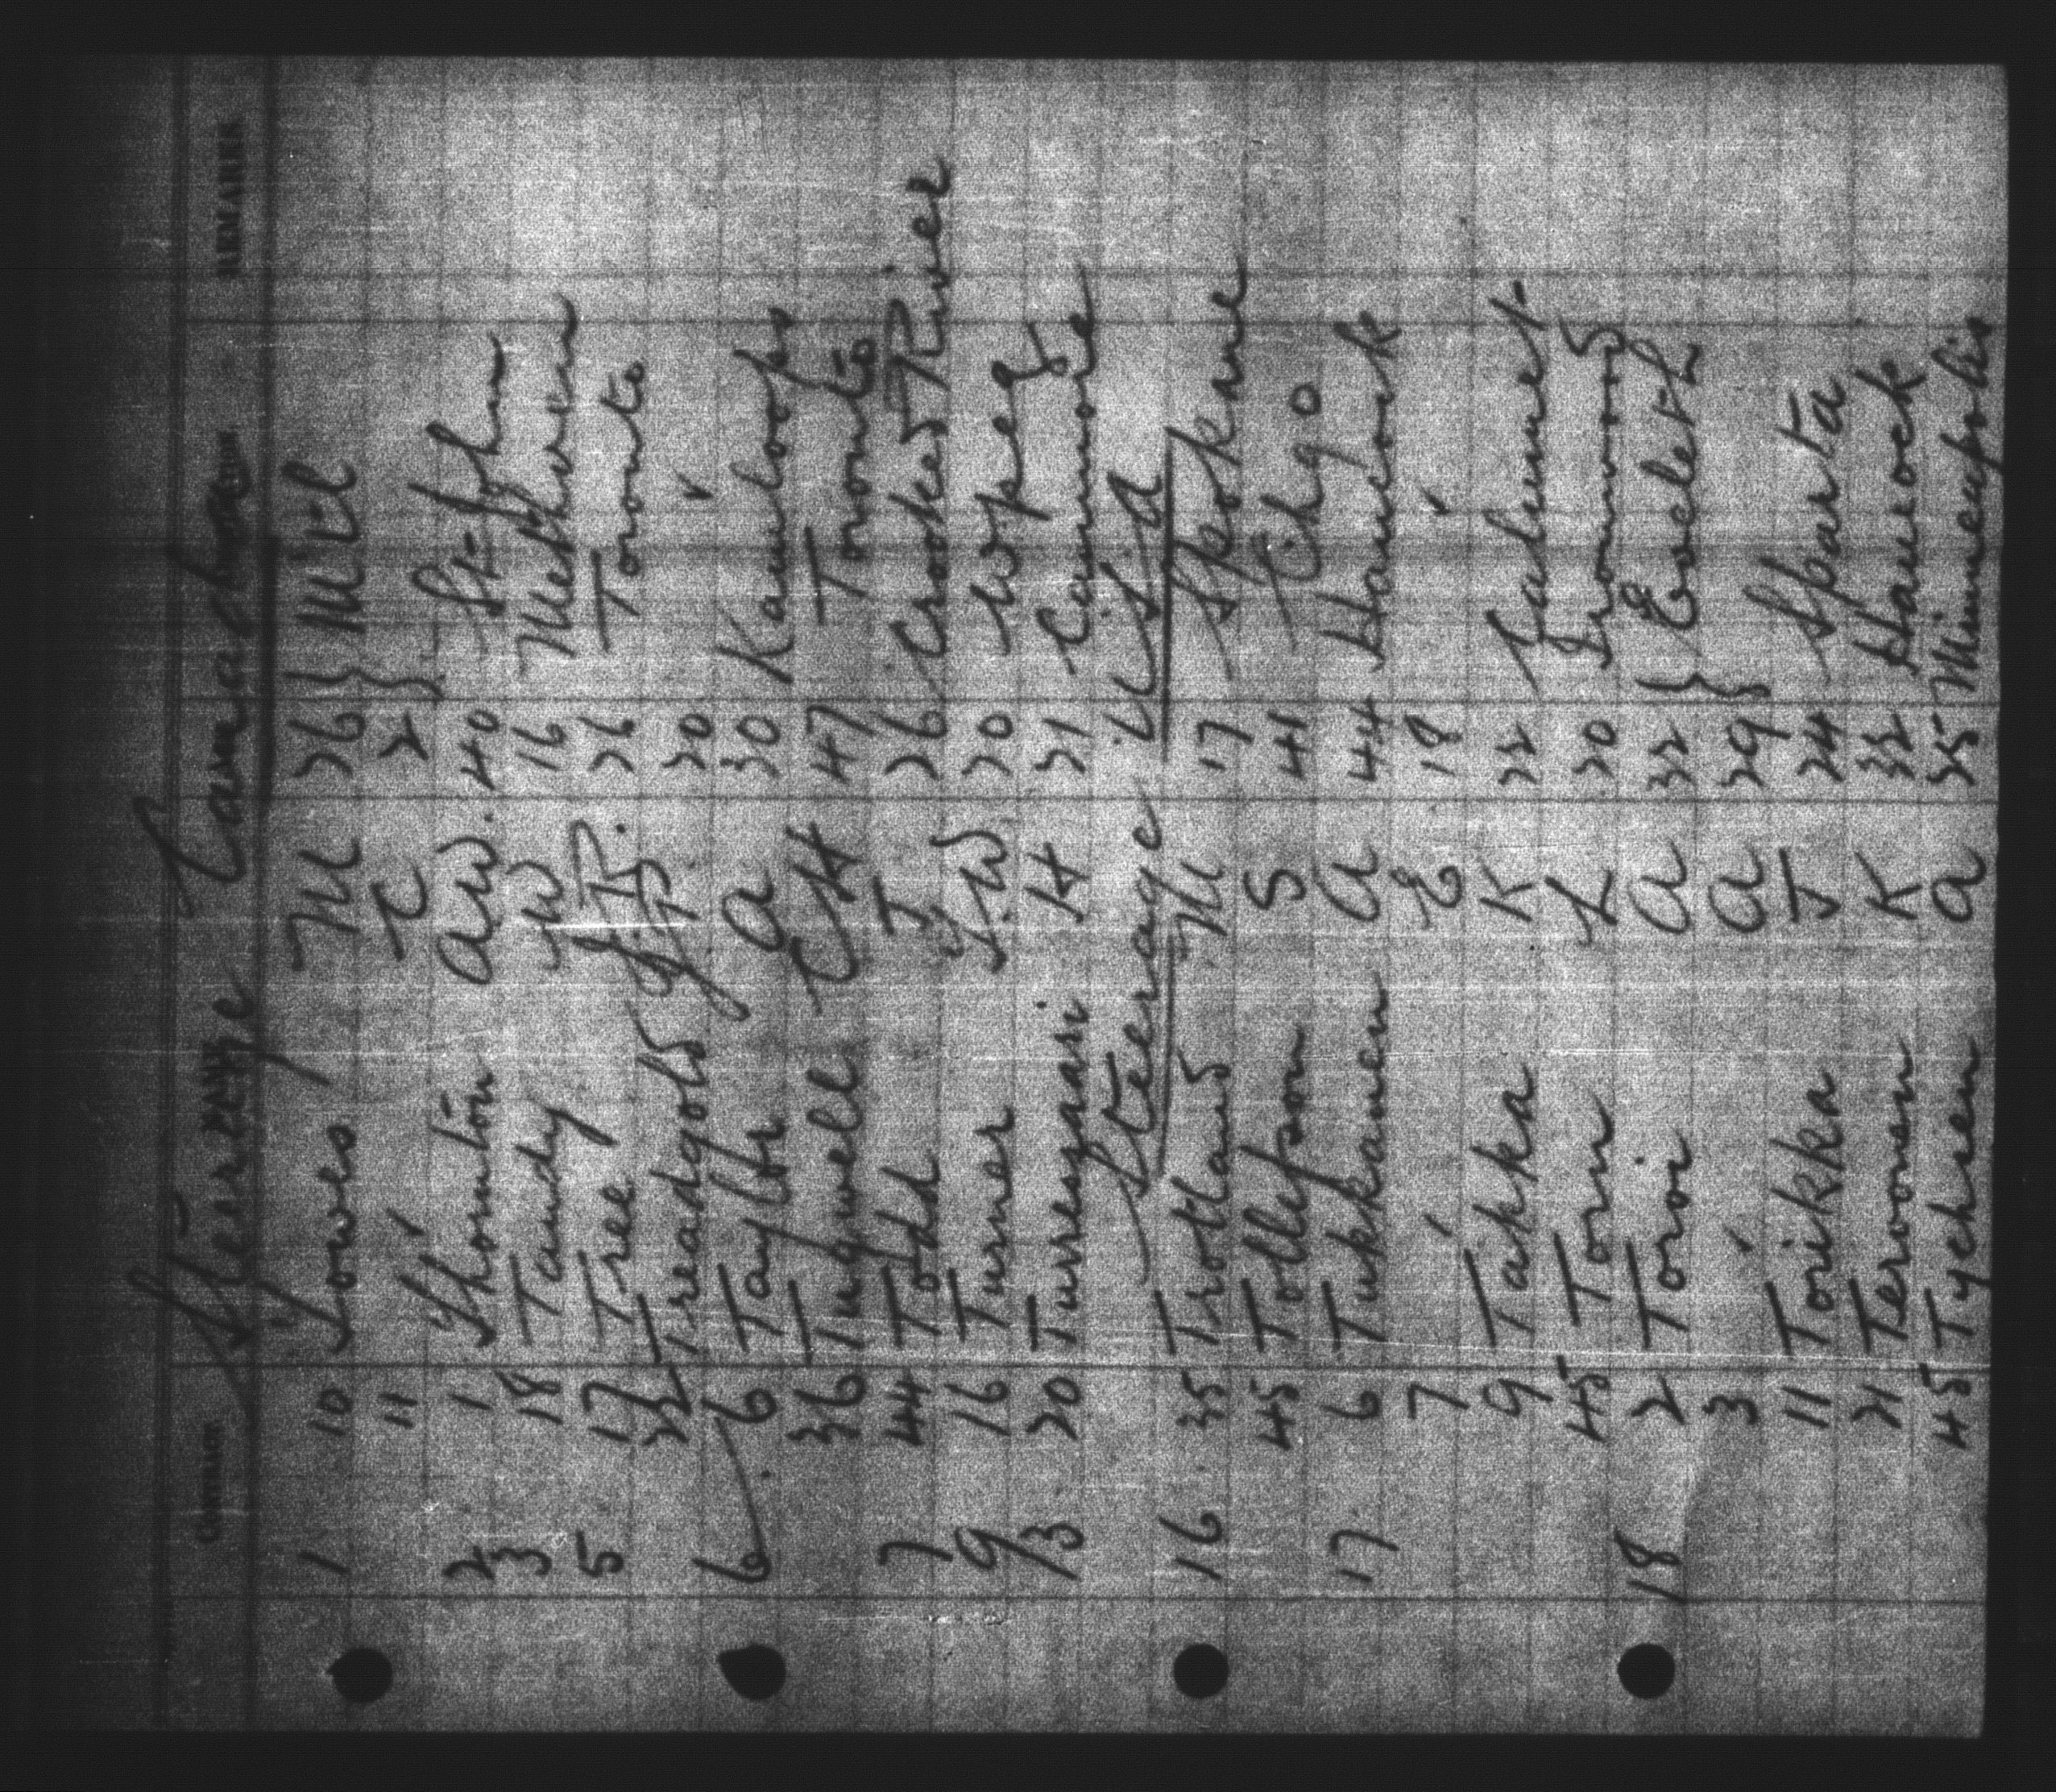 Steerage Canadian
CONTRACT REMARKS
1 10 Towes M 26 } Mtl
11 " T C 2 }
2 1 Thornton AW. 40 St John
3 18 Tandy W 16 Methven
5 17 Tree J.R. 26 Toronto
22 Treadgold J P 20 "
6 6 Taylor A 30 Kamloops
36 Tugwell CH 47 Toronto
7 44 Todd J 26 Crooked River
9 16 Turner S.W 20 Wpeg
13 20 Turregani H 21 Canmore
Steerage U.S.A
16 35 Trotland M 17 Spokane
45 Tollefson S 41 Chgo
17 6 Tukkanen A 44 Hancock
7 " E 18 "
9 Takka K 22 Calumet
45 Torn K 20 Ironwood
18 2 Toroi A 32 } Eveleth
3 " A 29 }
11 Torikka J 24 Sparta
21 Teronen K 32 Hancock
45 Tychsen A 25 Minneapolis